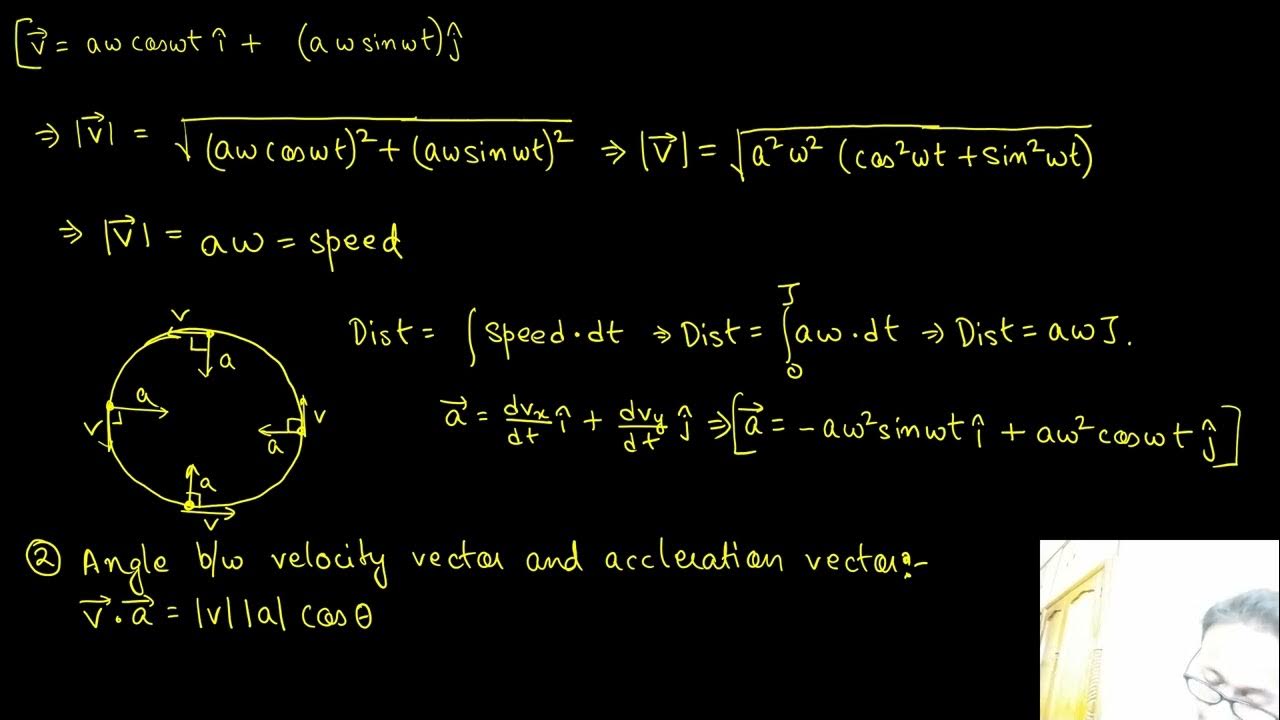 [v⃗ = aω cosωt î + (aω sinωt) ĵ
⇒ |v⃗| = √((aω cosωt)² + (aω sinωt)²) ⇒ |v⃗| = √(a²ω² (cos²ωt + sin²ωt))
⇒ |v⃗| = aω = speed
Dist = ∫ speed·dt ⇒ Dist = ∫₀ᵀ aω·dt ⇒ Dist = aωT.
a⃗ = dvx/dt î + dvy/dt ĵ ⇒ [a⃗ = -aω² sinωt î + aω² cosωt ĵ]
v
a
a
v
v
a
a
v
② Angle b/w velocity vector and accleration vector:-
v⃗·a⃗ = |v| |a| cosθ